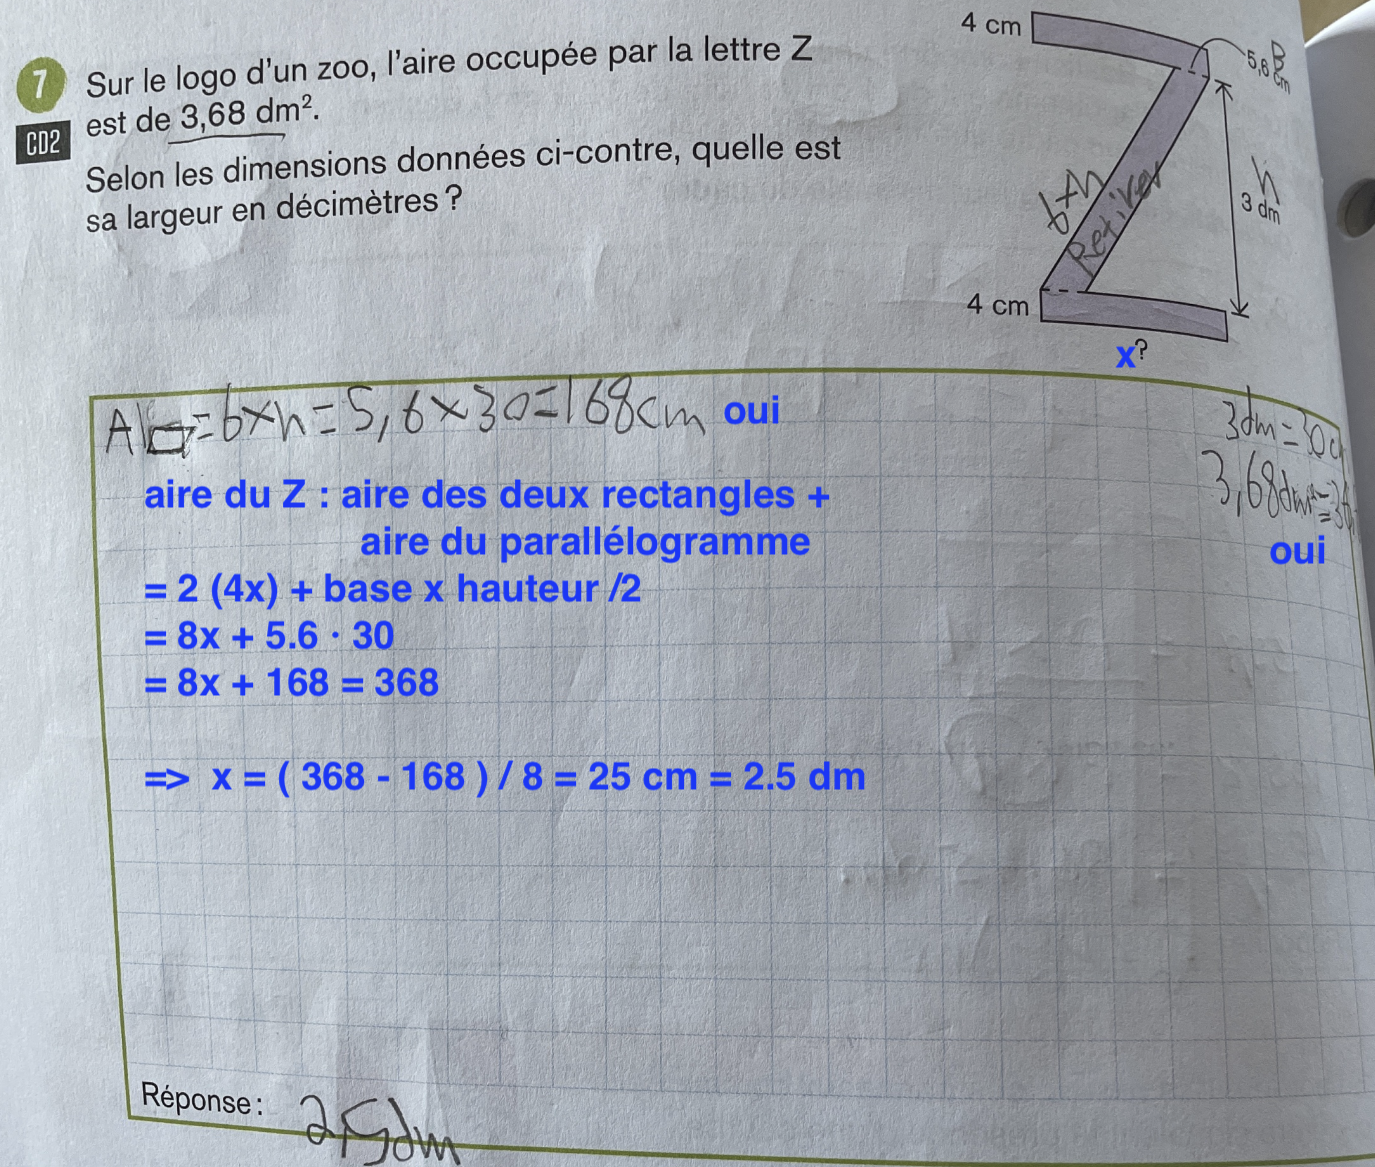 4 cm
7 Sur le logo d'un zoo, l'aire occupée par la lettre Z
est de 3,68 dm².
CD2
Selon les dimensions données ci-contre, quelle est
sa largeur en décimètres ?
B
5,6 cm
b×h
Retirer
h
3 dm
4 cm
x?
A = b×h = 5,6×30=168cm oui
3dm=30c
3,68dm²=3
oui
aire du Z : aire des deux rectangles +
aire du parallélogramme
= 2 (4x) + base x hauteur /2
= 8x + 5.6 · 30
= 8x + 168 = 368
=> x = ( 368 - 168 ) / 8 = 25 cm = 2.5 dm
Réponse : 2,5dm